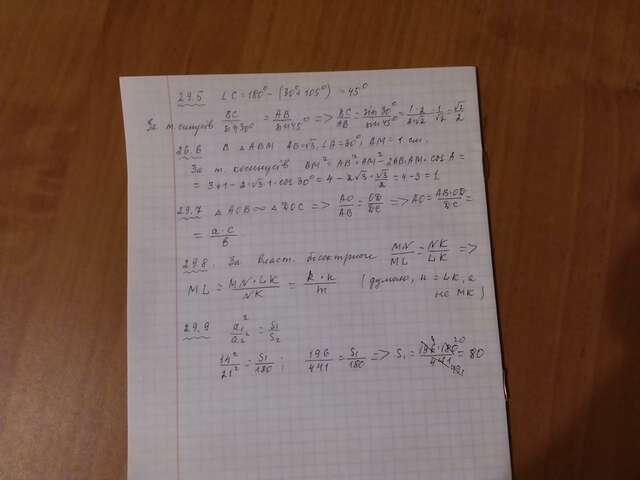 29.5 LC = 180° - (30° + 105°) = 45°
За т. синусів BC/sin30° = AB/sin45° => BC/AB = sin30°/sin45° = 1·2/2√2 = 1/√2 = √2/2
26.6 В △ABM AB=√3, LA=30°, AM=1 см.
За т. косинусів BM² = AB² + AM² - 2AB·AM·cos A =
= 3+1-2·√3·1·cos 30° = 4-2√3·√3/2 = 4-3=1
29.7 △AOB ∞ △DOC => AO/AB = OD/DC => AO = AB·OD/DC =
= a·c/b
29.8. За власт. бісектриси MN/ML = NK/LK =>
ML = MN·LK/NK = k·n/m (думаю, n = LK, а
не MK)
29.9 a₁²/a₂² = S₁/S₂
14²/21² = S₁/180; 196/441 = S₁/180 => S₁ = 196·180/441 = 80